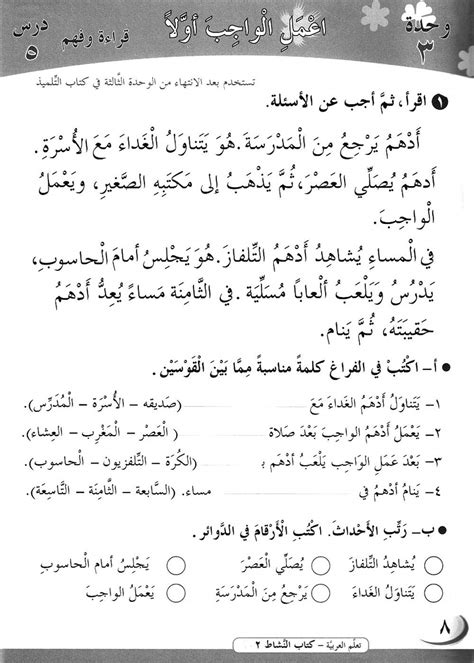 وحدة ٣
اعْمَلِ الْواجِبَ أوَّلاً
قراءة وفهم
درس ٥
تستخدم بعد الانتهاء من الوحدة الثالثة في كتاب التلميذ
١ اقرأ، ثمَّ أجب عن الأسئلة.
أَدْهَمُ يَرْجِعُ مِنَ الْمَدْرَسَةِ. هُوَ يَتَناوَلُ الْغَداءَ مَعَ الأُسْرَةِ.
أَدهَمُ يُصَلِّي الْعَصْرَ، ثُمَّ يَذْهَبُ إلى مَكتَبِهِ الصَّغيرِ، ويَعْمَلُ
الْواجِبَ.
في الْمساءِ يُشاهِدُ أَدْهَمُ التِّلفازَ. هُوَ يَجْلِسُ أمامَ الْحاسوبِ،
يَدْرُسُ وَيَلْعَبُ ألْعاباً مُسَلِّيَةً. في الثَّامِنَةِ مَساءً يُعِدُّ أَدْهَمُ
حَقيبَتَهُ، ثُمَّ يَنام.
أ- اكْتُبْ في الفراغِ كلمةً مناسبةً مِمَّا بَيْنَ الْقَوْسَيْنِ.
١- يَتَناوَلُ أَدْهَمُ الْغَداءَ مَعَ (صَديقه - الأُسْرَة - الْمُدَرِّس).
٢- يَعْمَلُ أَدْهَمُ الواجِبَ بَعْدَ صَلاة ( الْعَصْر - الْمَغْرِب - العِشاء).
٣- بَعْدَ عَمَلِ الوَاجِبِ يَلْعَبُ أدْهَم بـ (الكُرَة - التِّلفزيون - الْحاسوب).
٤- يَنامُ أَدْهَمُ في مساء. (السَّابعة - الثَّامِنَة - التَّاسِعَة).
ب- رَتِّبِ الأَحْداثَ. اكْتُبِ الْأَرْقامَ في الدَّوائر.
يُشاهِدُ التِّلفازَ يُصَلِّي الْعَصْرَ يَجْلِسُ أمام الْحاسوب
يَتَناوَلُ الغَداءَ يَرْجِعُ مِنَ الْمَدْرَسَةِ يَعْمَلُ الواجِبَ
٨
تعلَّم العربيَّة - كتاب النَّشاط ٢